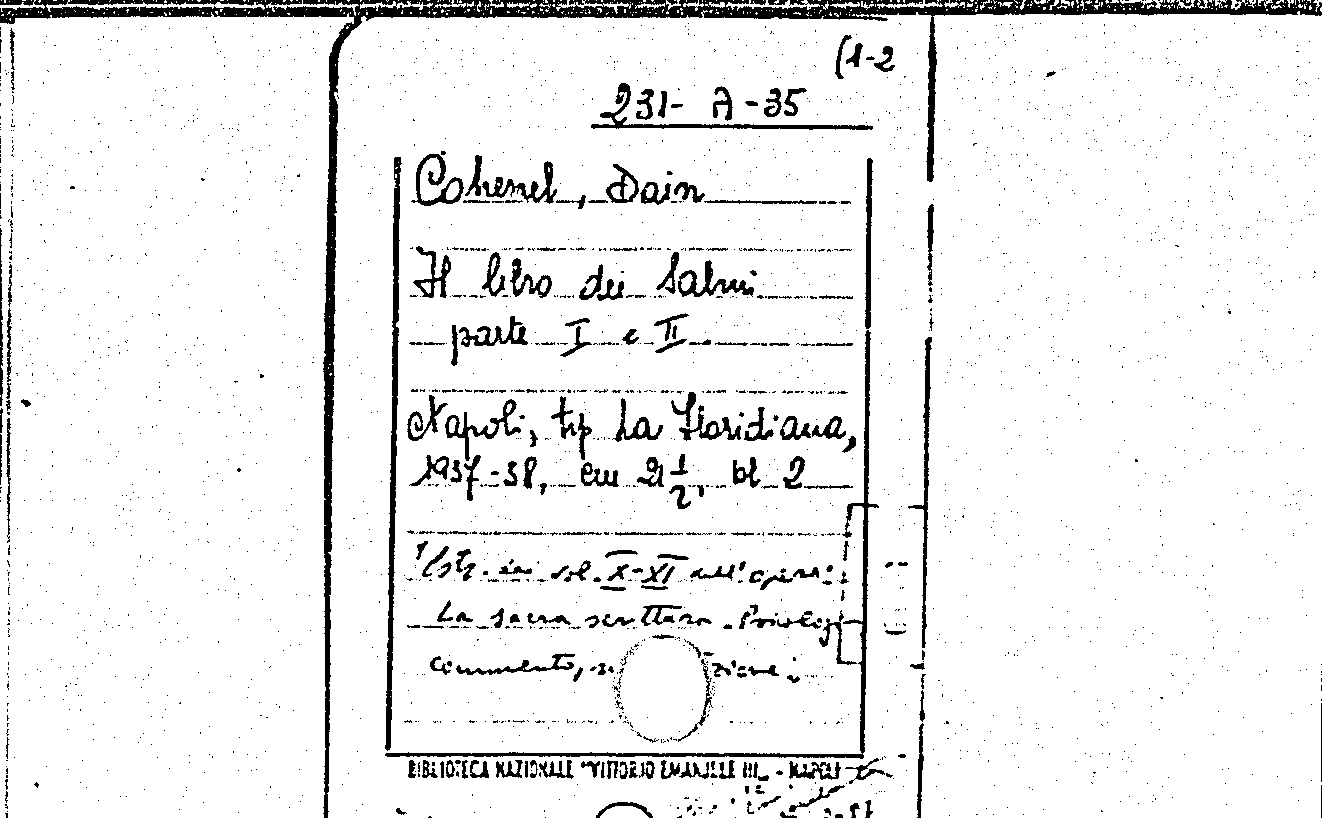 (1-2
231- A-35
Cohenel, Dain
Il libro dei Salmi
parte I e II.
Napoli, tip La Floridiana,
1937-38, cm 21 1/2, vl 2
vol. X-XI dell'opera:
La sacra scrittura. Psicologi
commento, zione;
BIBLIOTECA NAZIONALE "VITTORIO EMANUELE III„ - NAPOLI